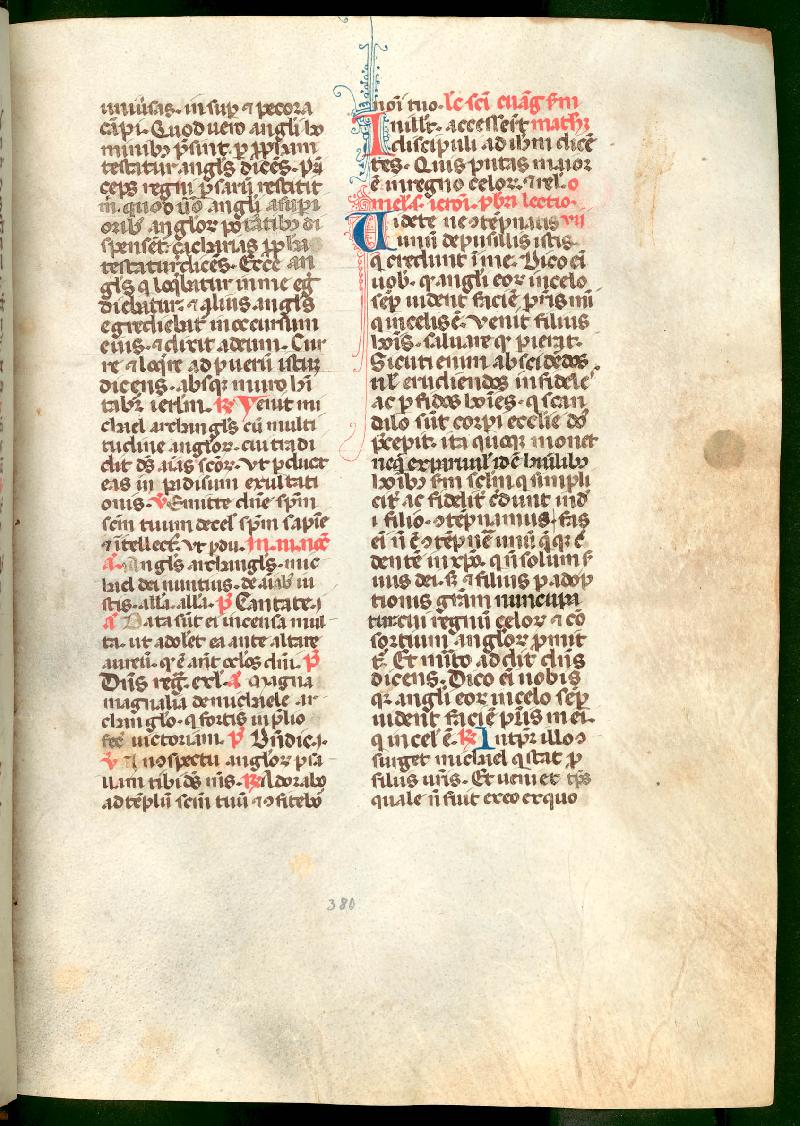 uniũsas. insup ⁊ pecora
cãpi. Quod uero angli ho
minibꝫ p̃sint. ꝑ ꝓph̃am
testatur angľs dicẽs. P̃ꝛ
ceps regni p̃saꝝ restitit
m̃. quod ũo angli
oribꝫ angloꝝ po tatibꝫ di
spenset. çacharias ꝓph̃a
testatur dicẽs. Ecce an
gľs q loq̃batur in me eg̃
diebatur. ⁊ alius angľs
egrediebat̃ in occursum
eius. ⁊ dixit ad eum. Cur
re ⁊ loq̃re ad pueꝝ istuꝫ
dicens. absqꝫ muro hĩ
tabiꝰ ierľm. ℟ Venit mi
chael archangľs cũ multi
tudine angloꝝ. cui tradi
dit dš aĩas scõꝝ. Vt ꝑducat
eas in padisum exultati
onis. ℣ Emitte dñe spm̃
scm̃ tuum de cel̃ spm̃ sapiẽ
⁊ ĩtellect̃. vt ꝑdu. In. iii. nõc̃
a᷑. Angľs archangľs. mic
hael dei nuntius. de aĩabꝫ iu
stis. alľa. alľa. p̃ Cantate. i
a᷑ Data sũt ei incensa mul
ta. ut adolet ea ante altare
aureũ. qꝫ ẽ ant̃ oclõs dñi. p̃
Dñs reg̃. exľ. a᷑ Magna
magnalia de michaele ar
changlo. q fortis in p̃lio
fec̃ uictoriam. p̃ Bñdic. i.
℣ In cõspectu angloꝝ psa
llam tibi dš mš. ℟ Adorabo
ad tẽplũ scm̃ tuũ ⁊ ꝯfitebõ
noĩ tuo. lc̃ sc̃i euãg̃ s̃m
In illľ t. accessert̃ math̃ꝫ
discipuli ad ih̃m dicẽ
tes. Quis putas maior
ẽ in regno celoꝝ. ⁊ rel̃. o
mel̃. s̃. ieroĩ. pb̃ri lectio.
Videte ne ꝯtẽpnatis vii
unũ de pusillis istis
q credunt ĩ me. Dico eĩ
uob̃. qꝫ angli eoꝝ in celo
sẽp uident faciẽ pr̃is mĩ
q in celis ẽ. Venit filius
hoĩs. saluare qꝫ pierat̃.
Sicuti enim abscidẽdos.
nľ erudiendos in fidele
ac ꝑfidos hoĩes. q scan
dilo sũt corpi ecclie dš
p̃cepit. ita quoqꝫ monet
neq̃ exp ĩdẽ hũilibꝫ
hoĩbꝫ s̃m seľm. q simpli
cit̃ ac fidelit̃ c̃dunt ĩnd̃
i filio. ꝯtẽpnamus. Fas
eĩ ñ ẽ ꝯtẽpnẽ unũ q̃qꝫ c̃
dentẽ in xp̃o. q ñ solum s̃
uus dei. sꝫ ⁊ filius ꝑ adop
tionis gr̃am nuncupa
tur. cui regnũ celoꝝ ⁊ cõ
sortium angloꝝ p̃mit
t̃. Et m̃ito addit dñs
dicens. Dico eĩ uobis
qꝫ angli eoꝝ in celo sẽp
uident faciẽ pr̃is mei.
q in cel̃ ẽ. ℟ In tp̃r illo
surget michael q stat ꝑ
filiis uris. Et ueniet tp̃s
quale ñ fuit ex eo ex quo
380